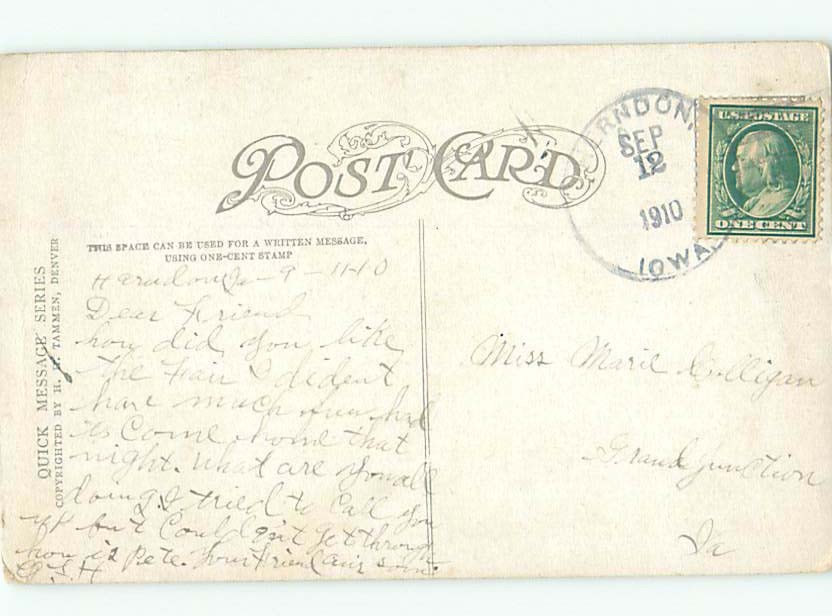 POST CARD
HERNDON,
SEP
12
1910
IOWA
U.S. POSTAGE
ONE CENT
THIS SPACE CAN BE USED FOR A WRITTEN MESSAGE,
USING ONE-CENT STAMP
QUICK MESSAGE SERIES
COPYRIGHTED BY H. H. TAMMEN, DENVER
Ia 9-11-10
Dear Friend
how did you like
the Fair I dident
have much fun had
to Come home that
night. What are you all
doing. I tried to Call you
up but Could n't get through
how is Pete. Your Friend
Miss Marie Colligan
Grand Junction
Ia